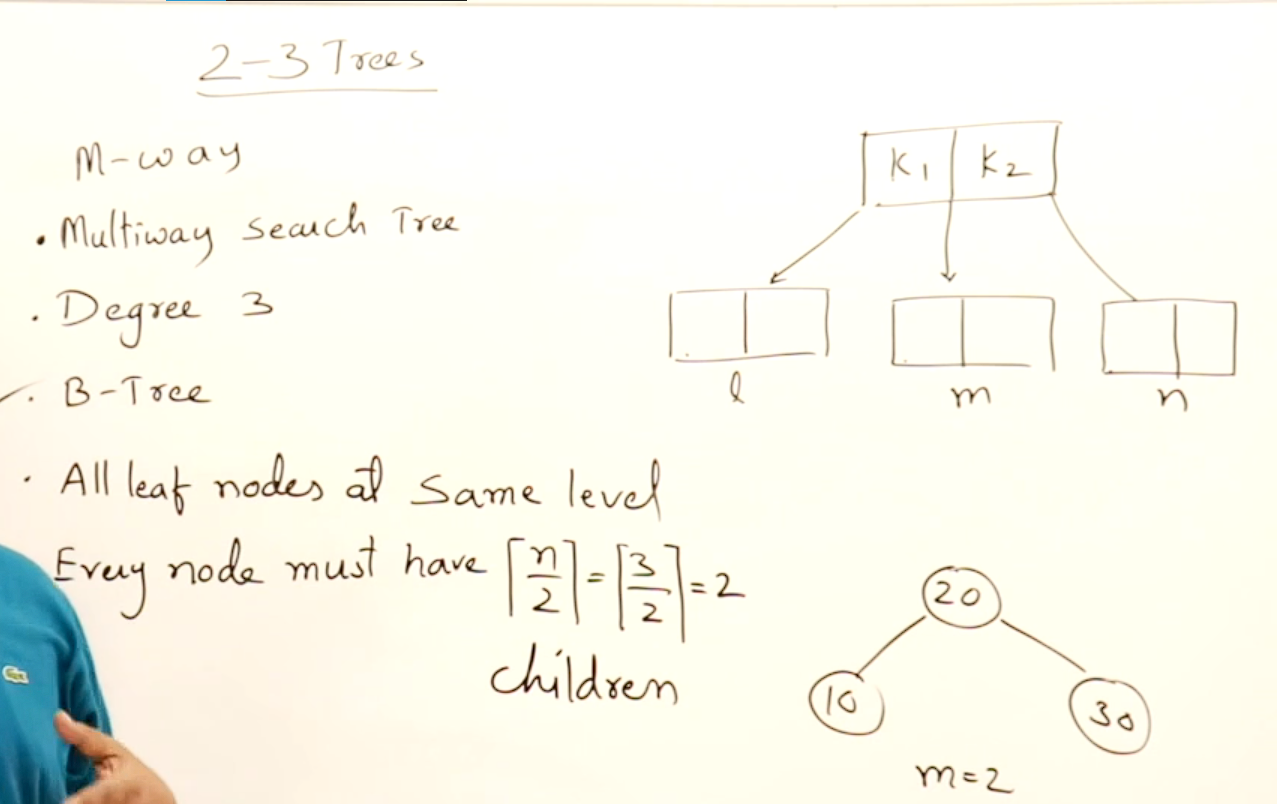 2-3 Trees
M-way
• Multiway search Tree
• Degree 3
• B-Tree
• All leaf nodes at same level
Every node must have ⌈n/2⌉=⌈3/2⌉=2
children
K1 K2
l m n
20
10 30
m=2